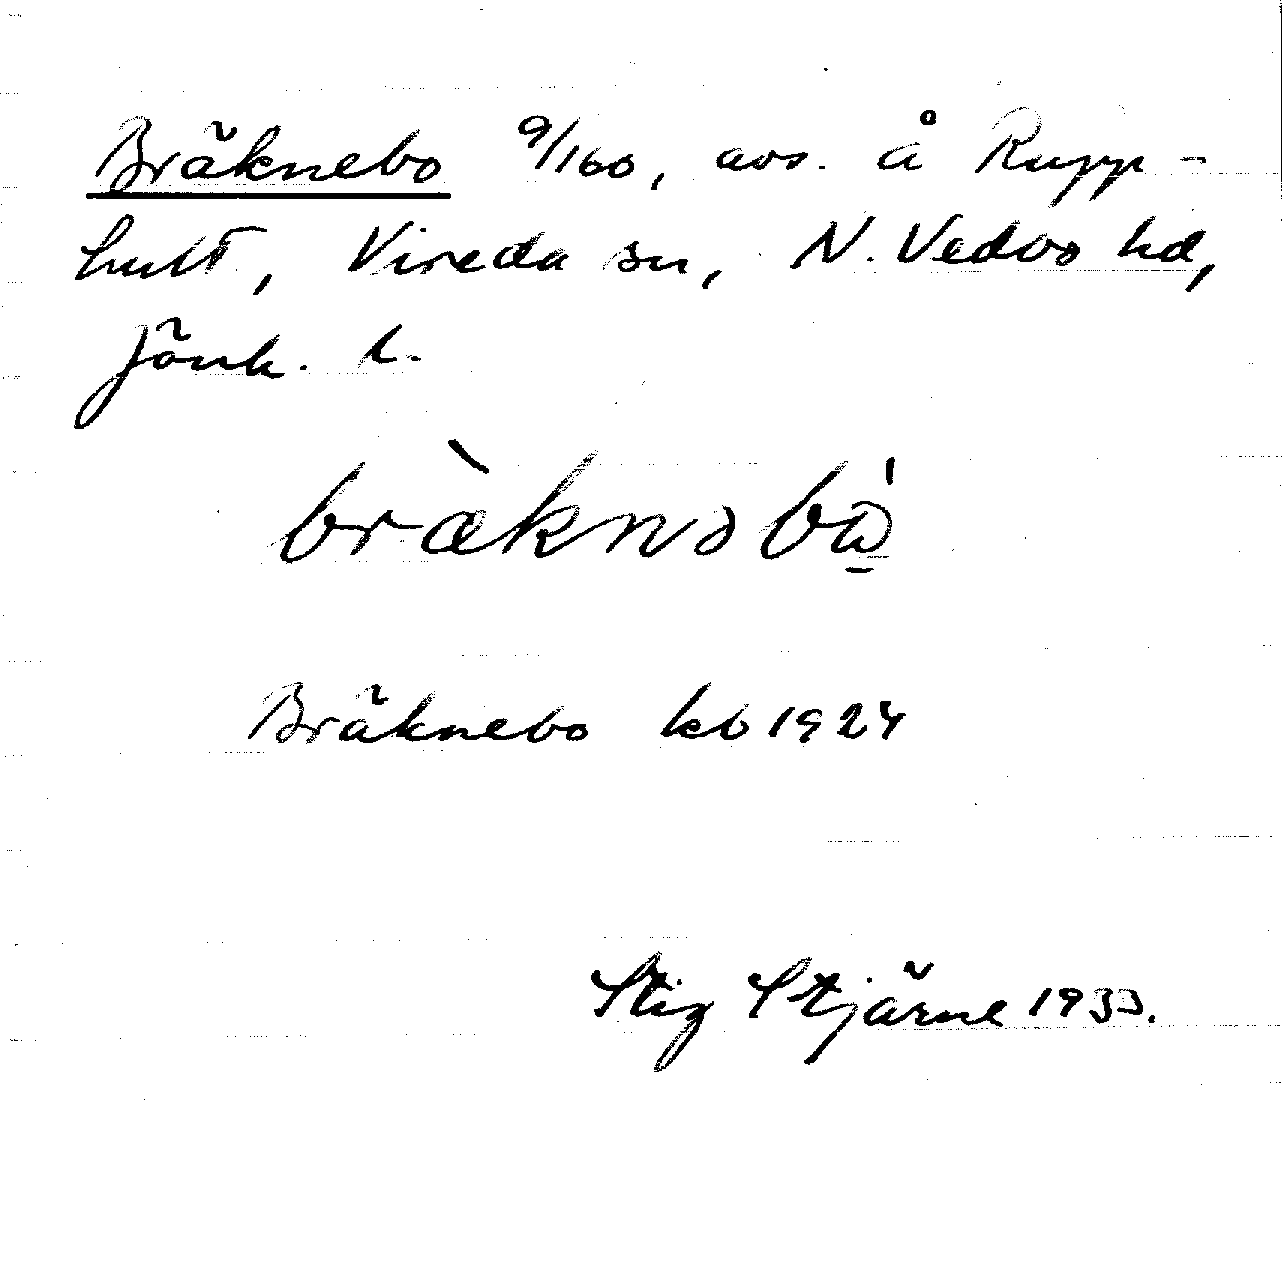 Bräknebo 9/160, avs. å Rupp-
hult, Vireda sn, N. Vedbo hd,
Jönk. l.
bræknəbɷ
Bräknebo kb 1924
Stig Stjärne 1933.